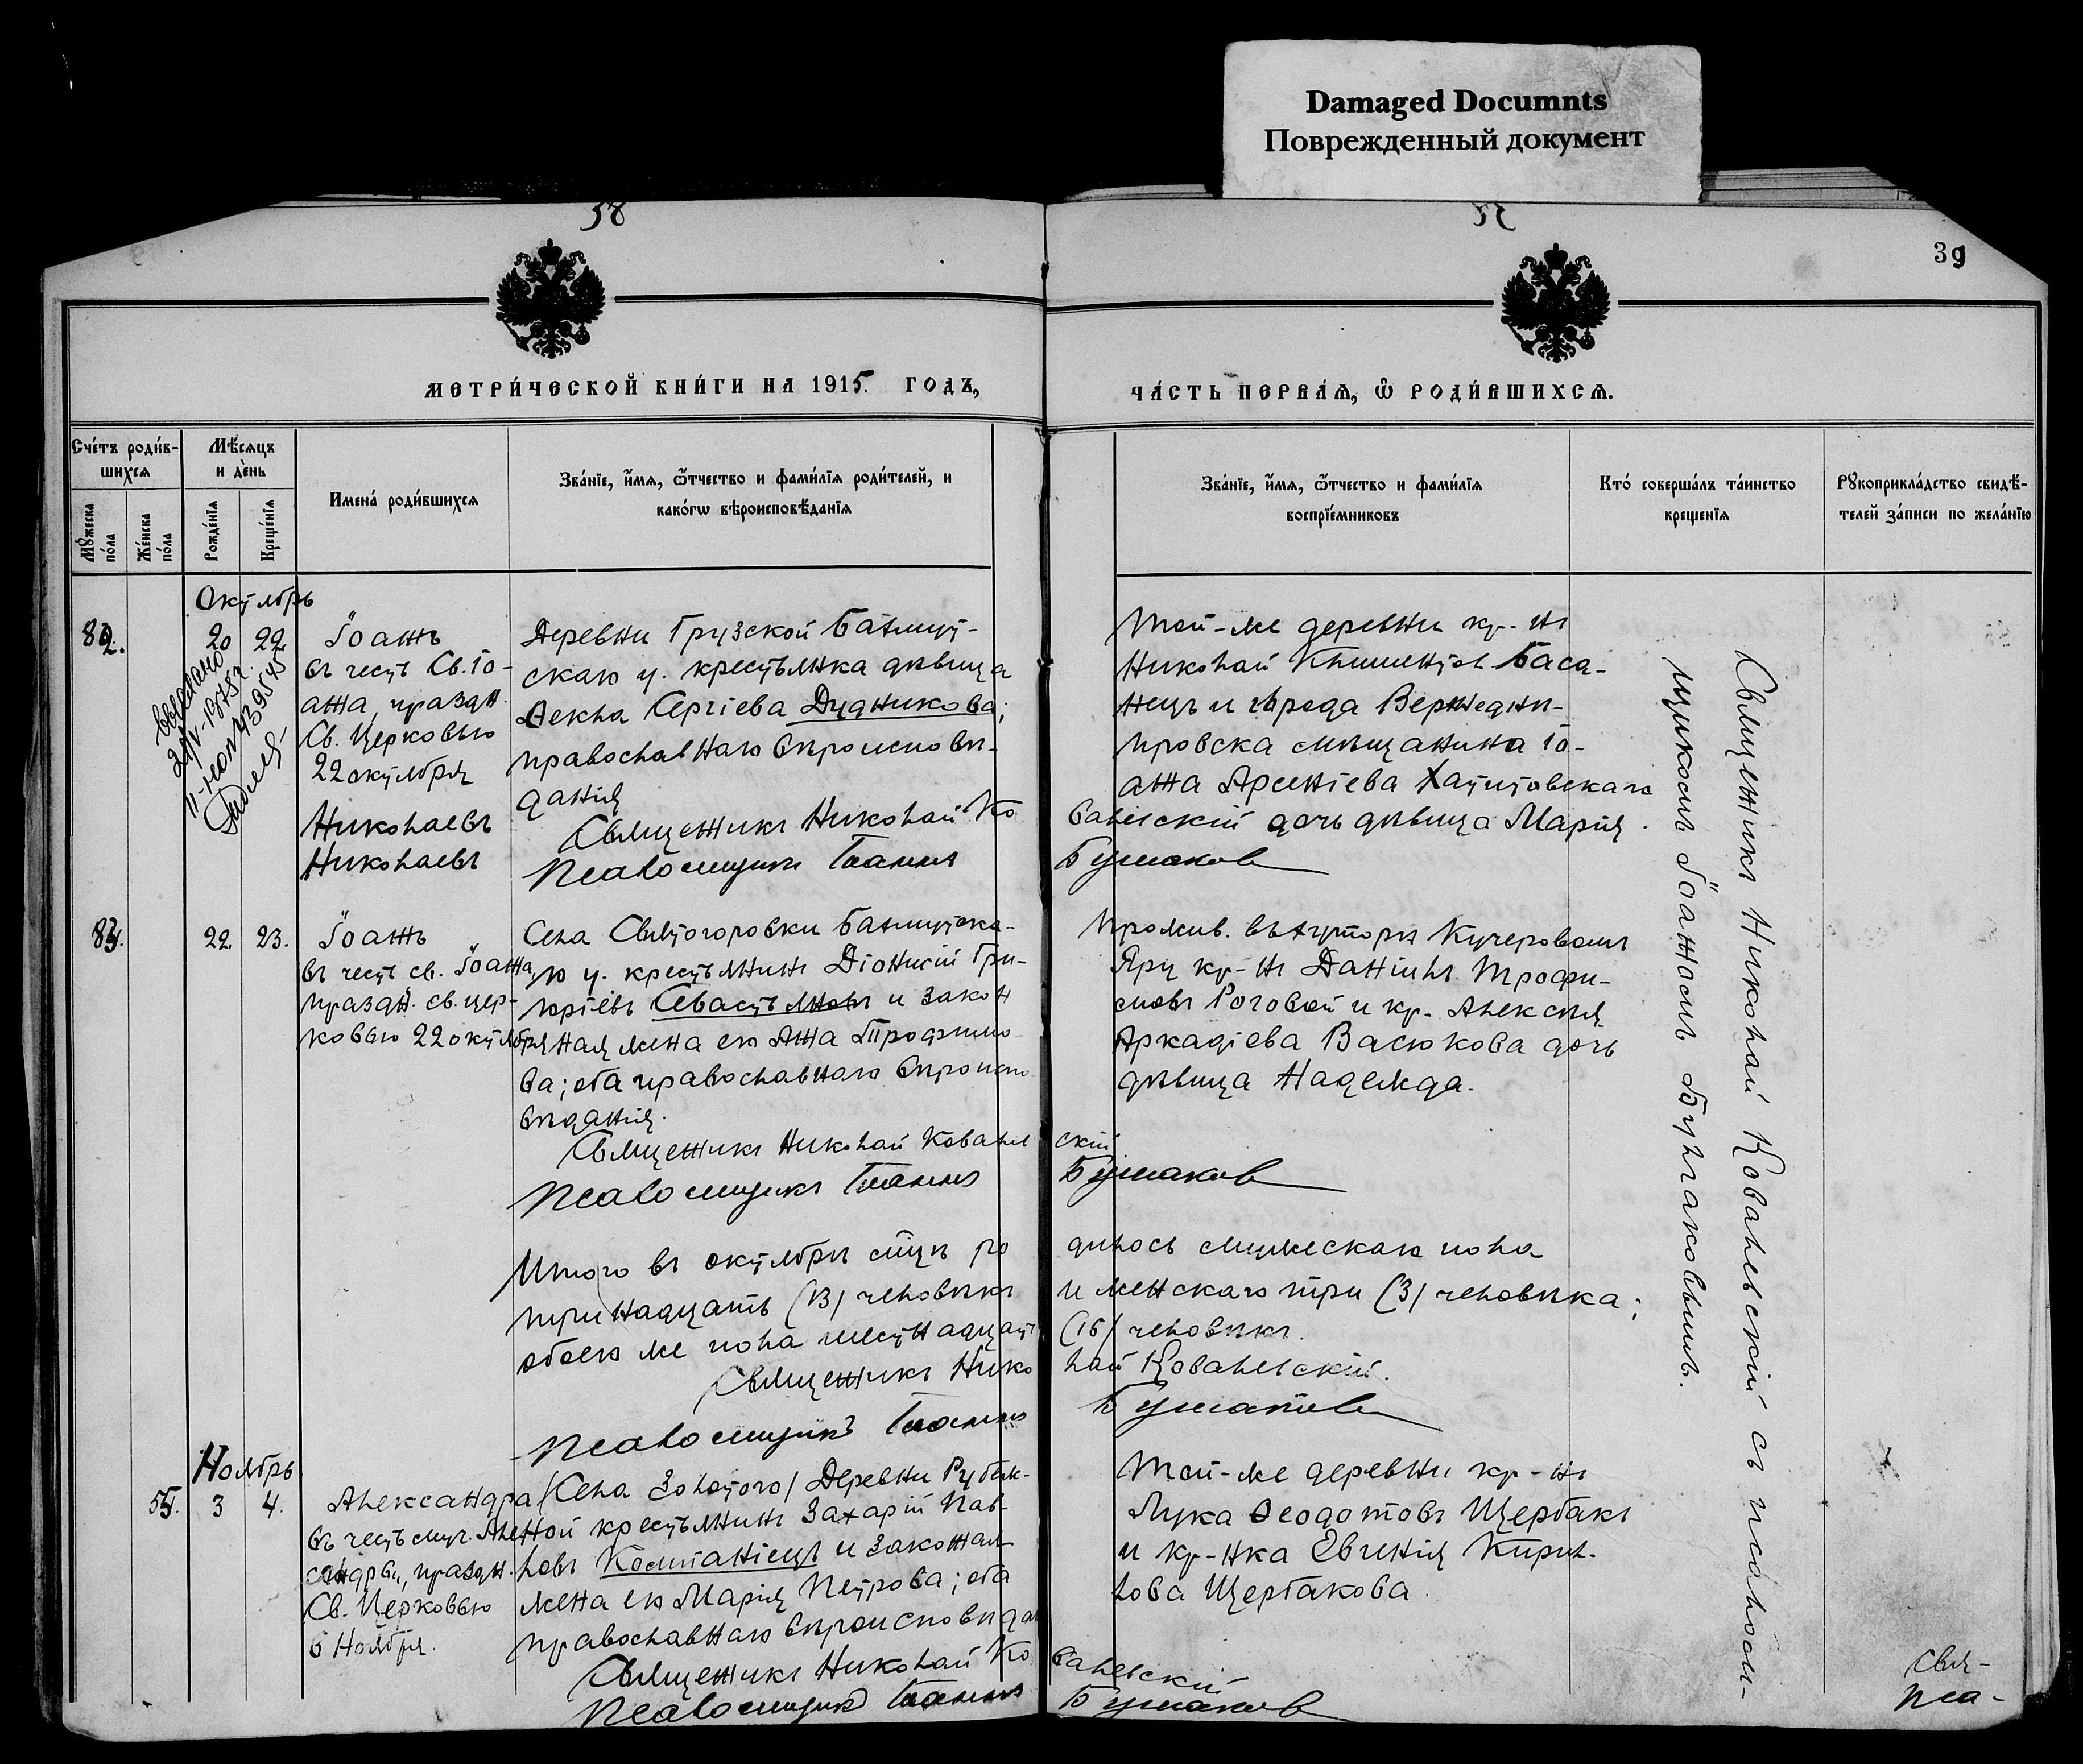 Damaged Documnts
Поврежденный документ
58
39
МЕТРИ́ЧЕСКОЙ КНИ́ГИ НА 1915. ГОДЪ,
ЧА́СТЬ ПЕРВА́Ѧ, Ѽ РОДИ́ВШИХСѦ.
Счéтъ роди́в-
шихся
Мѣ́сяцъ
и дéнь
Мꙋ́жеска
пóла
Жéнска
пóла
Рождéнїѧ
Крещéнїѧ
Именá роди́вшихся
Звáнїе, и́мѧ, ѻ́тчество и фами́лїѧ роди́телей, и
какóгѡ вѣроисповѣ́данїѧ
Звáнїе, и́мѧ, ѻ́тчество и фами́лїѧ
воспрїéмниковъ
Ктó совершáлъ тáинство
крещенїѧ
Рꙋкоприклáдство свидѣ́-
телей зáписи по желáнїю
Октябрь
82.
20 22
Іоаннъ
въ честь Св. Іо-
анна, праздн.
Св. Церковью
22 октября
Николаевъ
Николаевъ
Деревни Грузской Бахмут-
скаго у. крестьянка дѣвица
Ѳекла Сергіева Дудникова;
православнаго вѣроисповѣ-
данія
Священникъ Николай Ко
валевскій
Псаломщикъ Іоаннъ
Булгаковъ
Той-же деревни кр-нъ
Николай Климентов Баса-
нецъ и города Верхнеднѣ-
провска мѣщанина Іо-
анна Арсеніева
дочь дѣвица Марія.
83.
22. 23.
Іоаннъ
въ честь св. Іоанна,
праздн. св. цер-
ковью 22 октября
Села Святогоровки Бахмутска-
го у. крестьянинъ Діонисій Гри-
горіевъ Севастьяновъ и закон
ная жена его Анна Трофимо-
ва; оба православнаго вѣроиспо-
вѣданія.
Священникъ Николай Ковалев
скій
Псаломщикъ Іоаннъ
Булгаковъ
Прожив. въ хуторѣ Кучеровомъ
Яру кр-нъ Даніилъ Трофи-
мовъ Роговой и кр. Алексѣя
Аркадіева Васюкова дочь
дѣвица Надежда.
Итого въ октябрѣ мѣсяцѣ ро
дилось мужескаго пола
тринадцать (13) человѣкъ
и женскаго три (3) человѣка;
обоего же пола шестнадцать
(16) человѣкъ.
Священникъ Нико
лай Ковалевскій.
Псаломщикъ Іоаннъ
Булгаковъ
Ноябрь
55. 3 4.
Александра
въ честь муч. Але
ксандры, праздн.
Св. Церковью
6 Ноября.
(Села Золотого) Деревни Рубеж-
ной крестьянинъ Захарій Пав-
ловъ Компаніецъ и законная
жена его Марія Петрова; оба
православнаго вѣроисповѣдан
Священникъ Николай Ко
валевскій
Псаломщикъ Іоаннъ
Булгаковъ
Той-же деревни кр-нъ
Лука Ѳеодотовъ Щербакъ
и кр-нка Евгенія Кирил-
лова Щербакова.
Священникъ Николай Ковалевскій съ псалом-
щикомъ Іоанномъ Булгаковымъ.
Свя-
Пса-